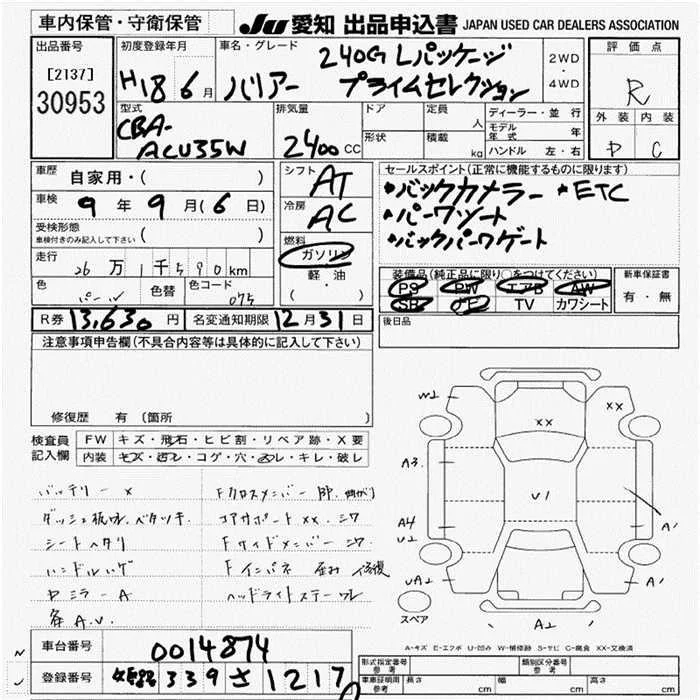 車内保管・守衛保管
JU 愛知 出品申込書 JAPAN USED CAR DEALERS ASSOCIATION
出品番号
[2137]
30953
初度登録年月
H18 6月
車名・グレード
ハリアー
240G Lパッケージ
プライムセレクション
2WD
・
4WD
評価点
R
外装 内装
D C
型式
CBA-
ACU35W
排気量
2400 CC
ドア
形状
定員 人
積載 kg
ディーラー・並行
モデル年式 年
ハンドル 左・右
車歴 自家用・( )
車検 9年9月(6日)
受検形態
車検付きのみ記入して下さい ( )
走行 26万1千590km
色 パール 色替 色コード 075
シフト AT
冷房 AC
燃料
ガソリン
軽・油
( ・ )
セールスポイント(正常に機能するものに限ります)
*バックカメラー *ETC
*パワーシート
*バックパワーゲート
装備品(純正品に限り○をつけてください)
PS PW エアB AW
SR カワシート TV
新車保証書
有・無
R券 13,630円 名変通知期限 12月31日
後日品
注意事項申告欄(不具合内容等は具体的に記入して下さい)
修復歴 有 〔箇所 〕
検査員
記入欄
FW キズ・飛石・ヒビ割・リペア跡・X要
内装 キズ・汚レ・コゲ・穴・スレ・キレ・破レ
バッテリー X
シートヘタリ
ミラーA
各A.U.
Fクロスメンバー
コアサポートXX.
Fサイドメンバー
Fインパネ 歪み 修復
W2
XX
XX
A3
U1
A4
U2
A1
UA2
A1
スペア
A2
A-キズ E-エクボ U-凹み W-補修跡 S-サビ C-腐食 XX-交換済
車台番号 0014874
登録番号 339 さ 1217
形式指定番号
参考
類別区分番号
参考
車庫証明用
参考
長さ cm 幅 cm 高さ cm